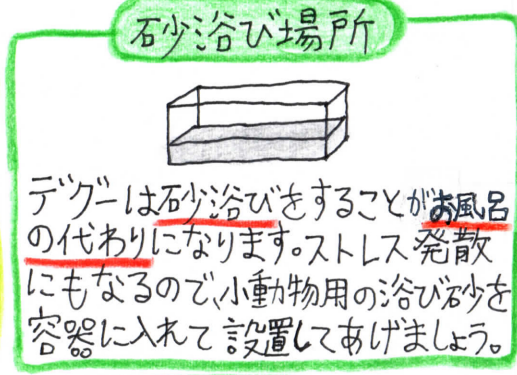 砂浴び場所
デグーは砂浴びをすることがお風呂
の代わりになります。ストレス発散
にもなるので、小動物用の浴び砂を
容器に入れて設置してあげましょう。